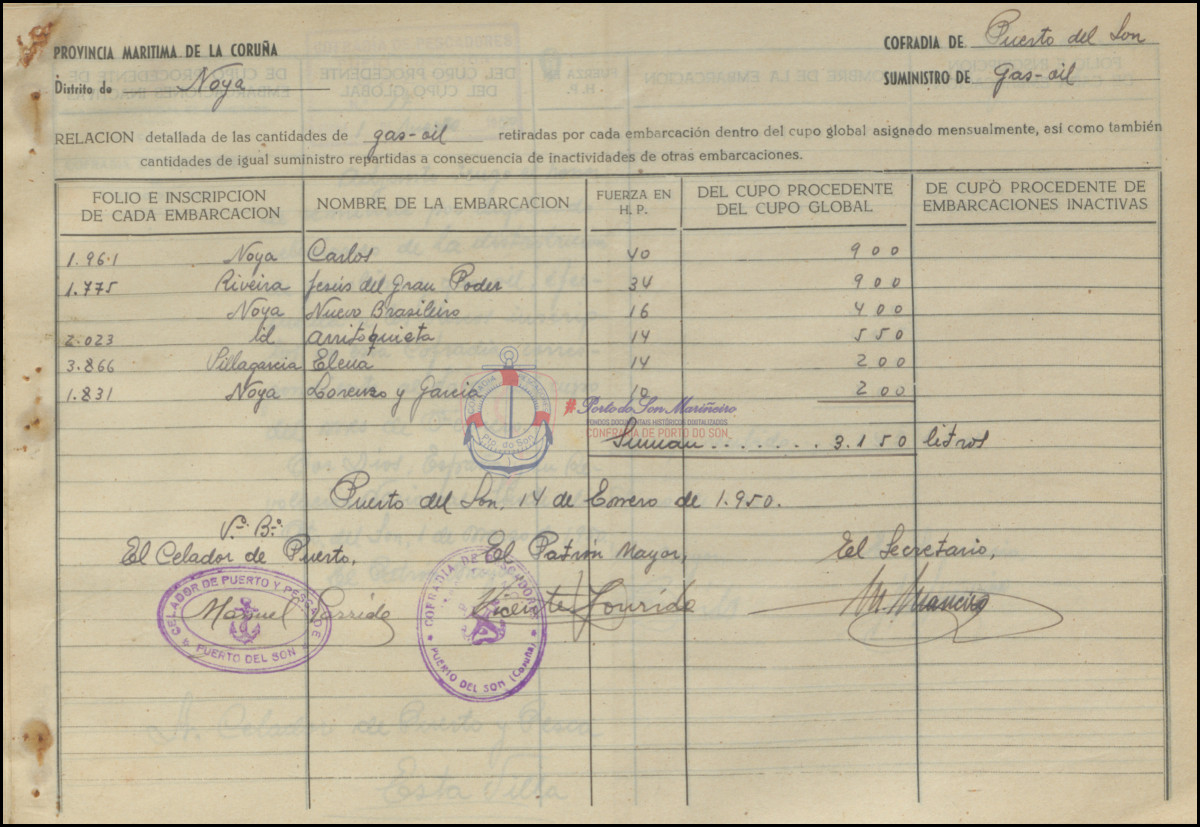 PROVINCIA MARITIMA DE LA CORUÑA
COFRADIA DE Puerto del Son
Distrito de Noya
SUMINISTRO DE gas-oil
RELACION detallada de las cantidades de gas-oil retiradas por cada embarcación dentro del cupo global asignado mensualmente, así como también
cantidades de igual suministro repartidas a consecuencia de inactividades de otras embarcaciones.
FOLIO E INSCRIPCION DE CADA EMBARCACION
NOMBRE DE LA EMBARCACION
FUERZA EN H. P.
DEL CUPO PROCEDENTE DEL CUPO GLOBAL
DE CUPO PROCEDENTE DE EMBARCACIONES INACTIVAS
1.961 Noya Carlos 40 900
1.775 Riveira Jesús del Gran Poder 34 900
Noya Nuevo Brasileiro 16 400
2.023 id arritoquieta 14 550
3.866 Villagarcia Elena 14 200
1.831 Noya Lorenzo y Garcia 10 200
#Porto do Son Mariñeiro
FONDOS DOCUMENTAIS HISTÓRICOS DIGITALIZADOS
CONFRARÍA DE PORTO DO SON
Pto. do Son
Suman . . . . . . . 3.150 litros
Puerto del Son, 14 de Enero de 1.950.
Vº. Bº.
El Celador de Puerto,
El Patrón Mayor,
El Secretario,
CELADOR DE PUERTO Y PESCA DE
PUERTO DEL SON
Manuel Garrido
COFRADIA DE PESCADORES
PUERTO DEL SON (Coruña)
Vicente Lourido